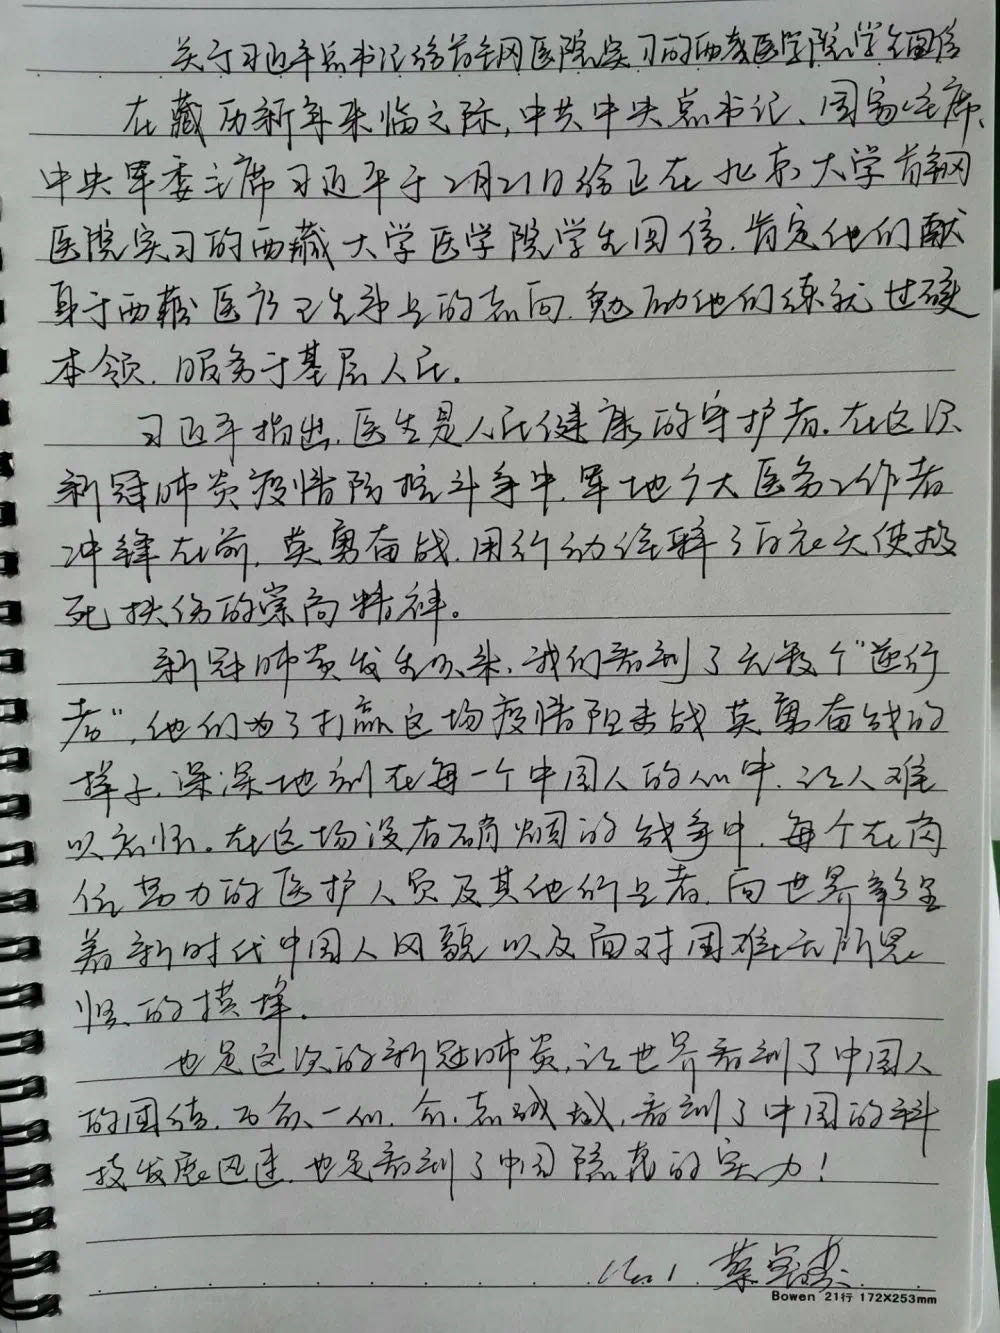 关于习近平总书记给首钢医院实习的西藏医学院学生回信
在藏历新年来临之际,中共中央总书记、国家主席、
中央军委主席习近平于2月21日给正在北京大学首钢
医院实习的西藏大学医学院学生回信,肯定他们献
身于西藏医疗卫生事业的志向,勉励他们练就过硬
本领,服务于基层人民。
习近平指出,医生是人民健康的守护者。在这次
新冠肺炎疫情防控斗争中,军地广大医务工作者
冲锋在前,英勇奋战,用行动诠释了白衣天使救
死扶伤的崇高精神。
新冠肺炎发生以来,我们看到了无数个“逆行
者”,他们为了打赢这场疫情阻击战英勇奋战的
样子,深深地刻在每一个中国人的心中,让人难
以忘怀。在这场没有硝烟的战争中,每个在岗
位努力的医护人员及其他从业者,向世界彰显
着新时代中国人风貌以及面对困难无所畏
惧的模样。
也是这次的新冠肺炎,让世界看到了中国人
的团结,万众一心,众志成城,看到了中国的科
技发展迅速,也是看到了中国隐藏的实力!
Bowen 21行 172X253mm